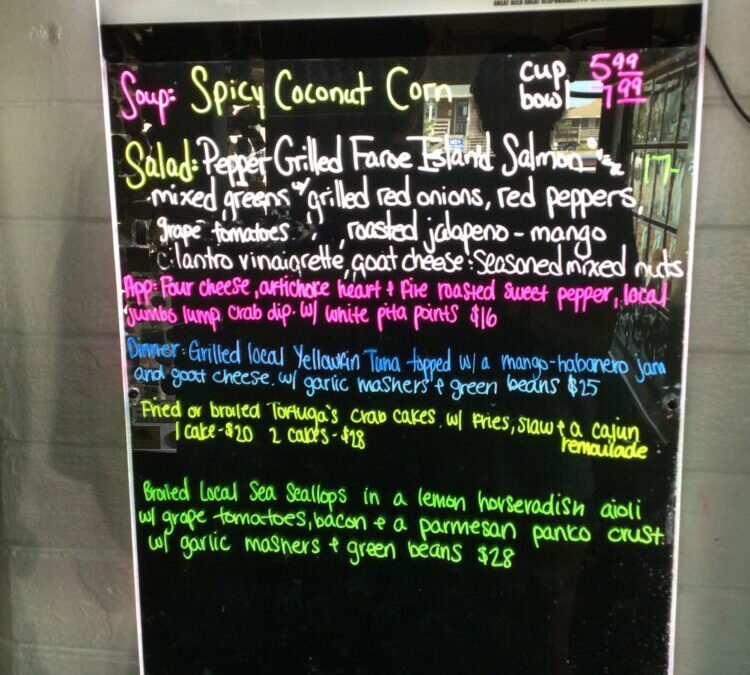 Soup: Spicy Coconut Corn cup 5.99
bowl 7.99
Salad: Pepper Grilled Faroe Island Salmon 17-
mixed greens w/ grilled red onions, red peppers,
grape tomatoes, roasted jalapeno - mango
cilantro vinaigrette, goat cheese: seasoned mixed nuts
App: Four cheese, artichoke heart + fire roasted sweet pepper, local
jumbo lump crab dip. w/ white pita points $16
Dinner: Grilled local Yellowfin Tuna topped w/ a mango-habanero jam
and goat cheese. w/ garlic mashers + green beans $25
Fried or broiled Tortuga's crab cakes. w/ fries, slaw + a cajun
1 cake - $20 2 cakes - $28 remoulade
Broiled Local Sea Scallops in a lemon horseradish aioli
w/ grape tomatoes, bacon + a parmesan panko crust.
w/ garlic mashers + green beans $28